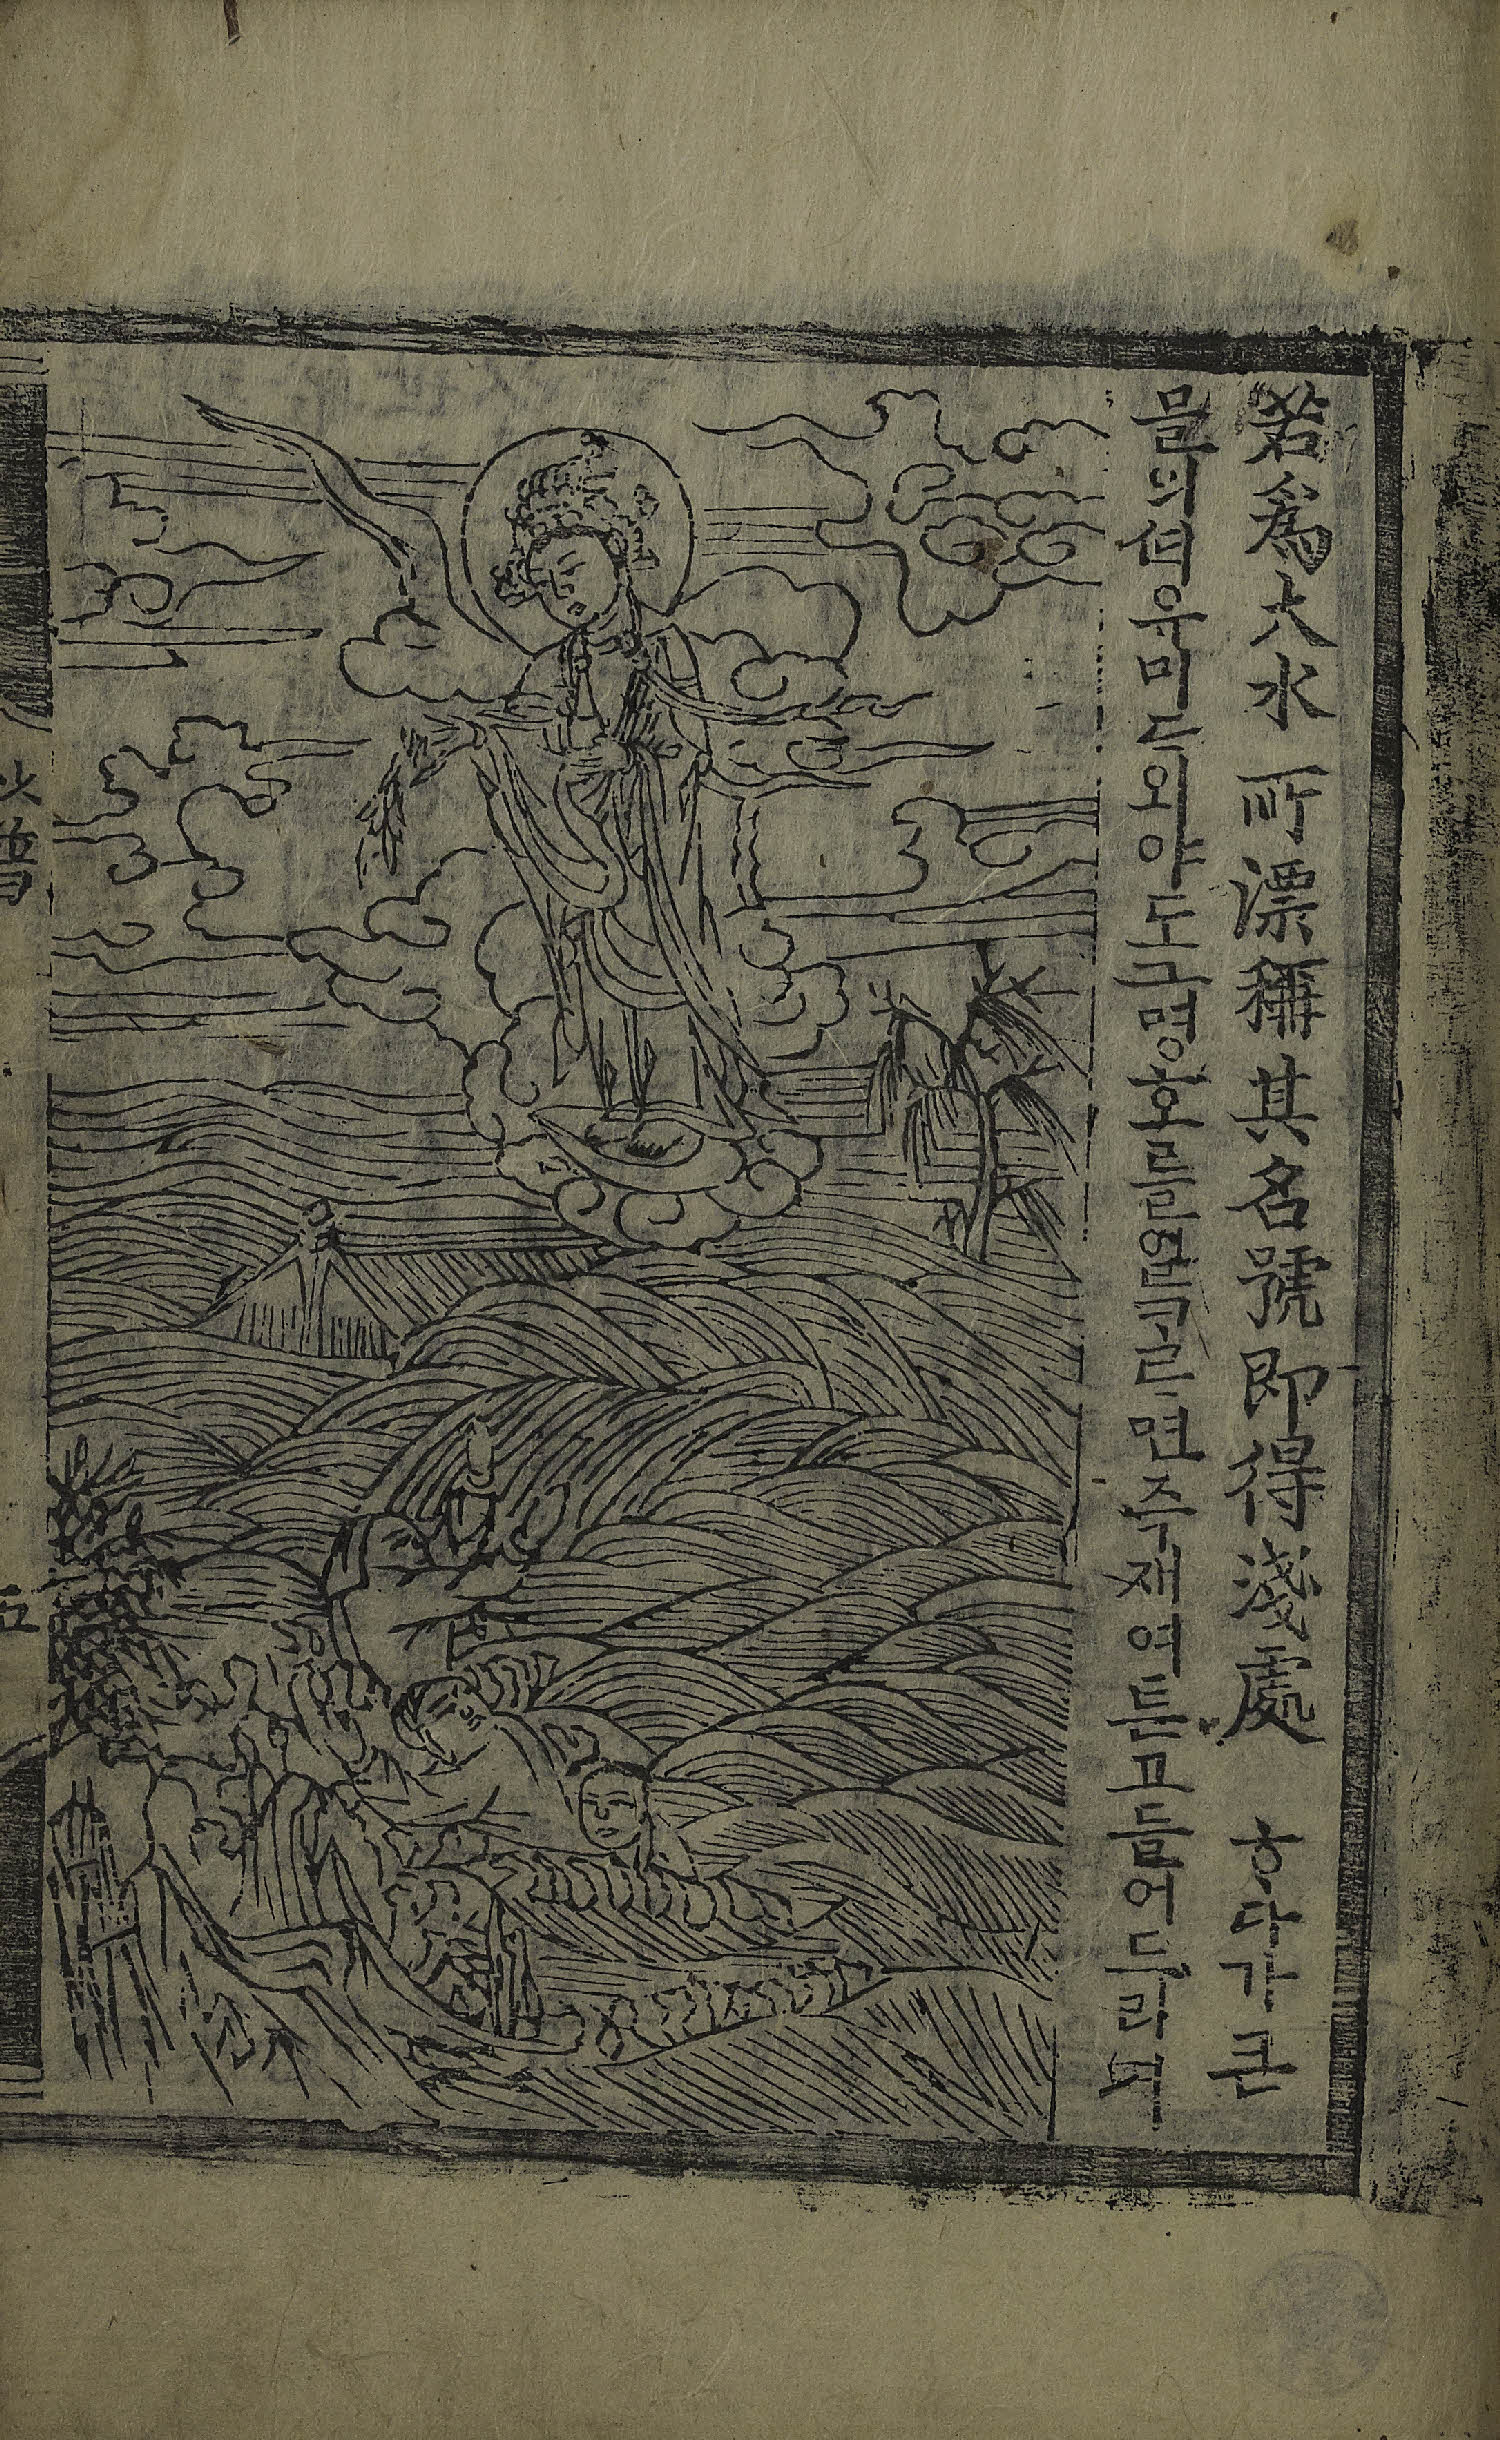 若爲大水所漂稱其名號即得淺處 ᄒᆞ다가큰
믈의ᄠᅥ유미도외야도그명호ᄅᆞᆯ일ᄏᆞᄅᆞ면즉재여튼고ᄃᆞᆯ어드리며
普
五